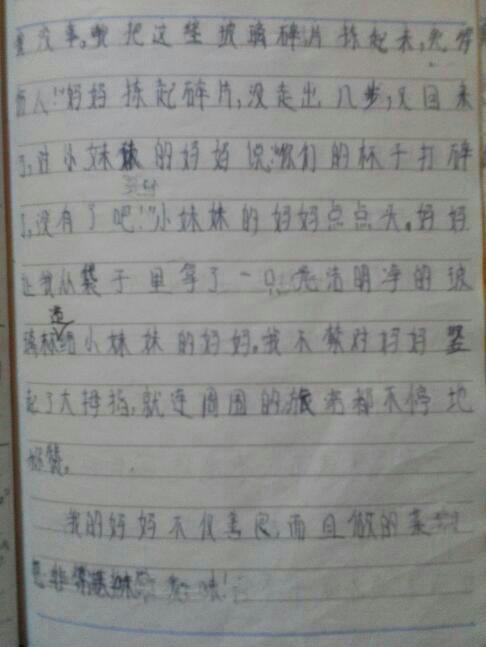 没事,我把这些玻璃碎片拣起来,免得
伤人!"妈妈拣起碎片,没走出几步,又回来
了,对小妹妹的妈妈说:"你们的杯子打碎
了,没有了吧!"小妹妹的妈妈点点头。妈妈
让我从袋子里拿了一只光洁明净的玻
璃杯送给小妹妹的妈妈。我不禁对妈妈竖
起了大拇指,就连周围的旅客都不停地
称赞。
我的妈妈不仅善良,而且做的菜
也非常 美味!